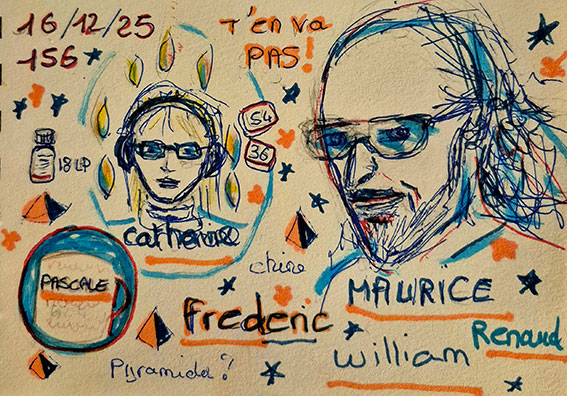 16/12/25
156
T'en va
PAS!
54
36
18 LP
catherine
PASCALE
chine
MAURICE
Frederic
Renaud
William
Pyramida?